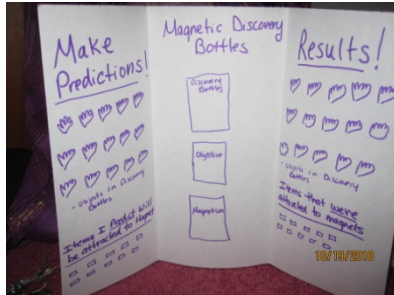 Make
Predictions!
- Objects in Discovery
Bottles
Items I Predict Will
be attracted to Magnet
Magnetic Discovery
Bottles
Discovery
Bottles
Objective
Magnetism
Results!
- Objects in Discovery
Bottles
Items that were
attracted to magnets
10/19/2010